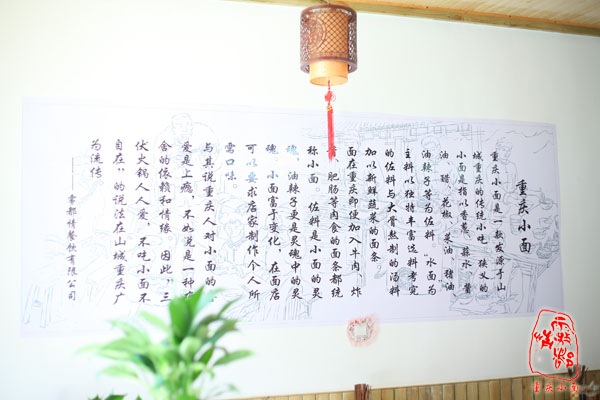 重庆小面
重庆小面是一款发源于山
城重庆的传统小吃。狭义的
小面是指以香葱、蒜水、酱
油、醋、花椒、芝油、猪油
油辣子等为佐料，水面为
主料以独特丰富选料考究
的佐料与大骨熬制的汤料
加以新鲜蔬菜的面条
面在重庆即使加入牛肉、炸
酱、肥肠等肉食的面条都统
称小面。佐料是小面的灵
魂，油辣子更是灵魂中的灵
魂。小面富于变化，在面店
可以要求店家制作个人所
需口味。
与其说重庆人对小面的
爱是上瘾，不如说是一种
舍的依赖和情缘。因此“三
伏火锅人人爱，不吃小面不
自在”的说法在山城重庆广
为流传
——雾都情餐饮有限公司
重庆小面